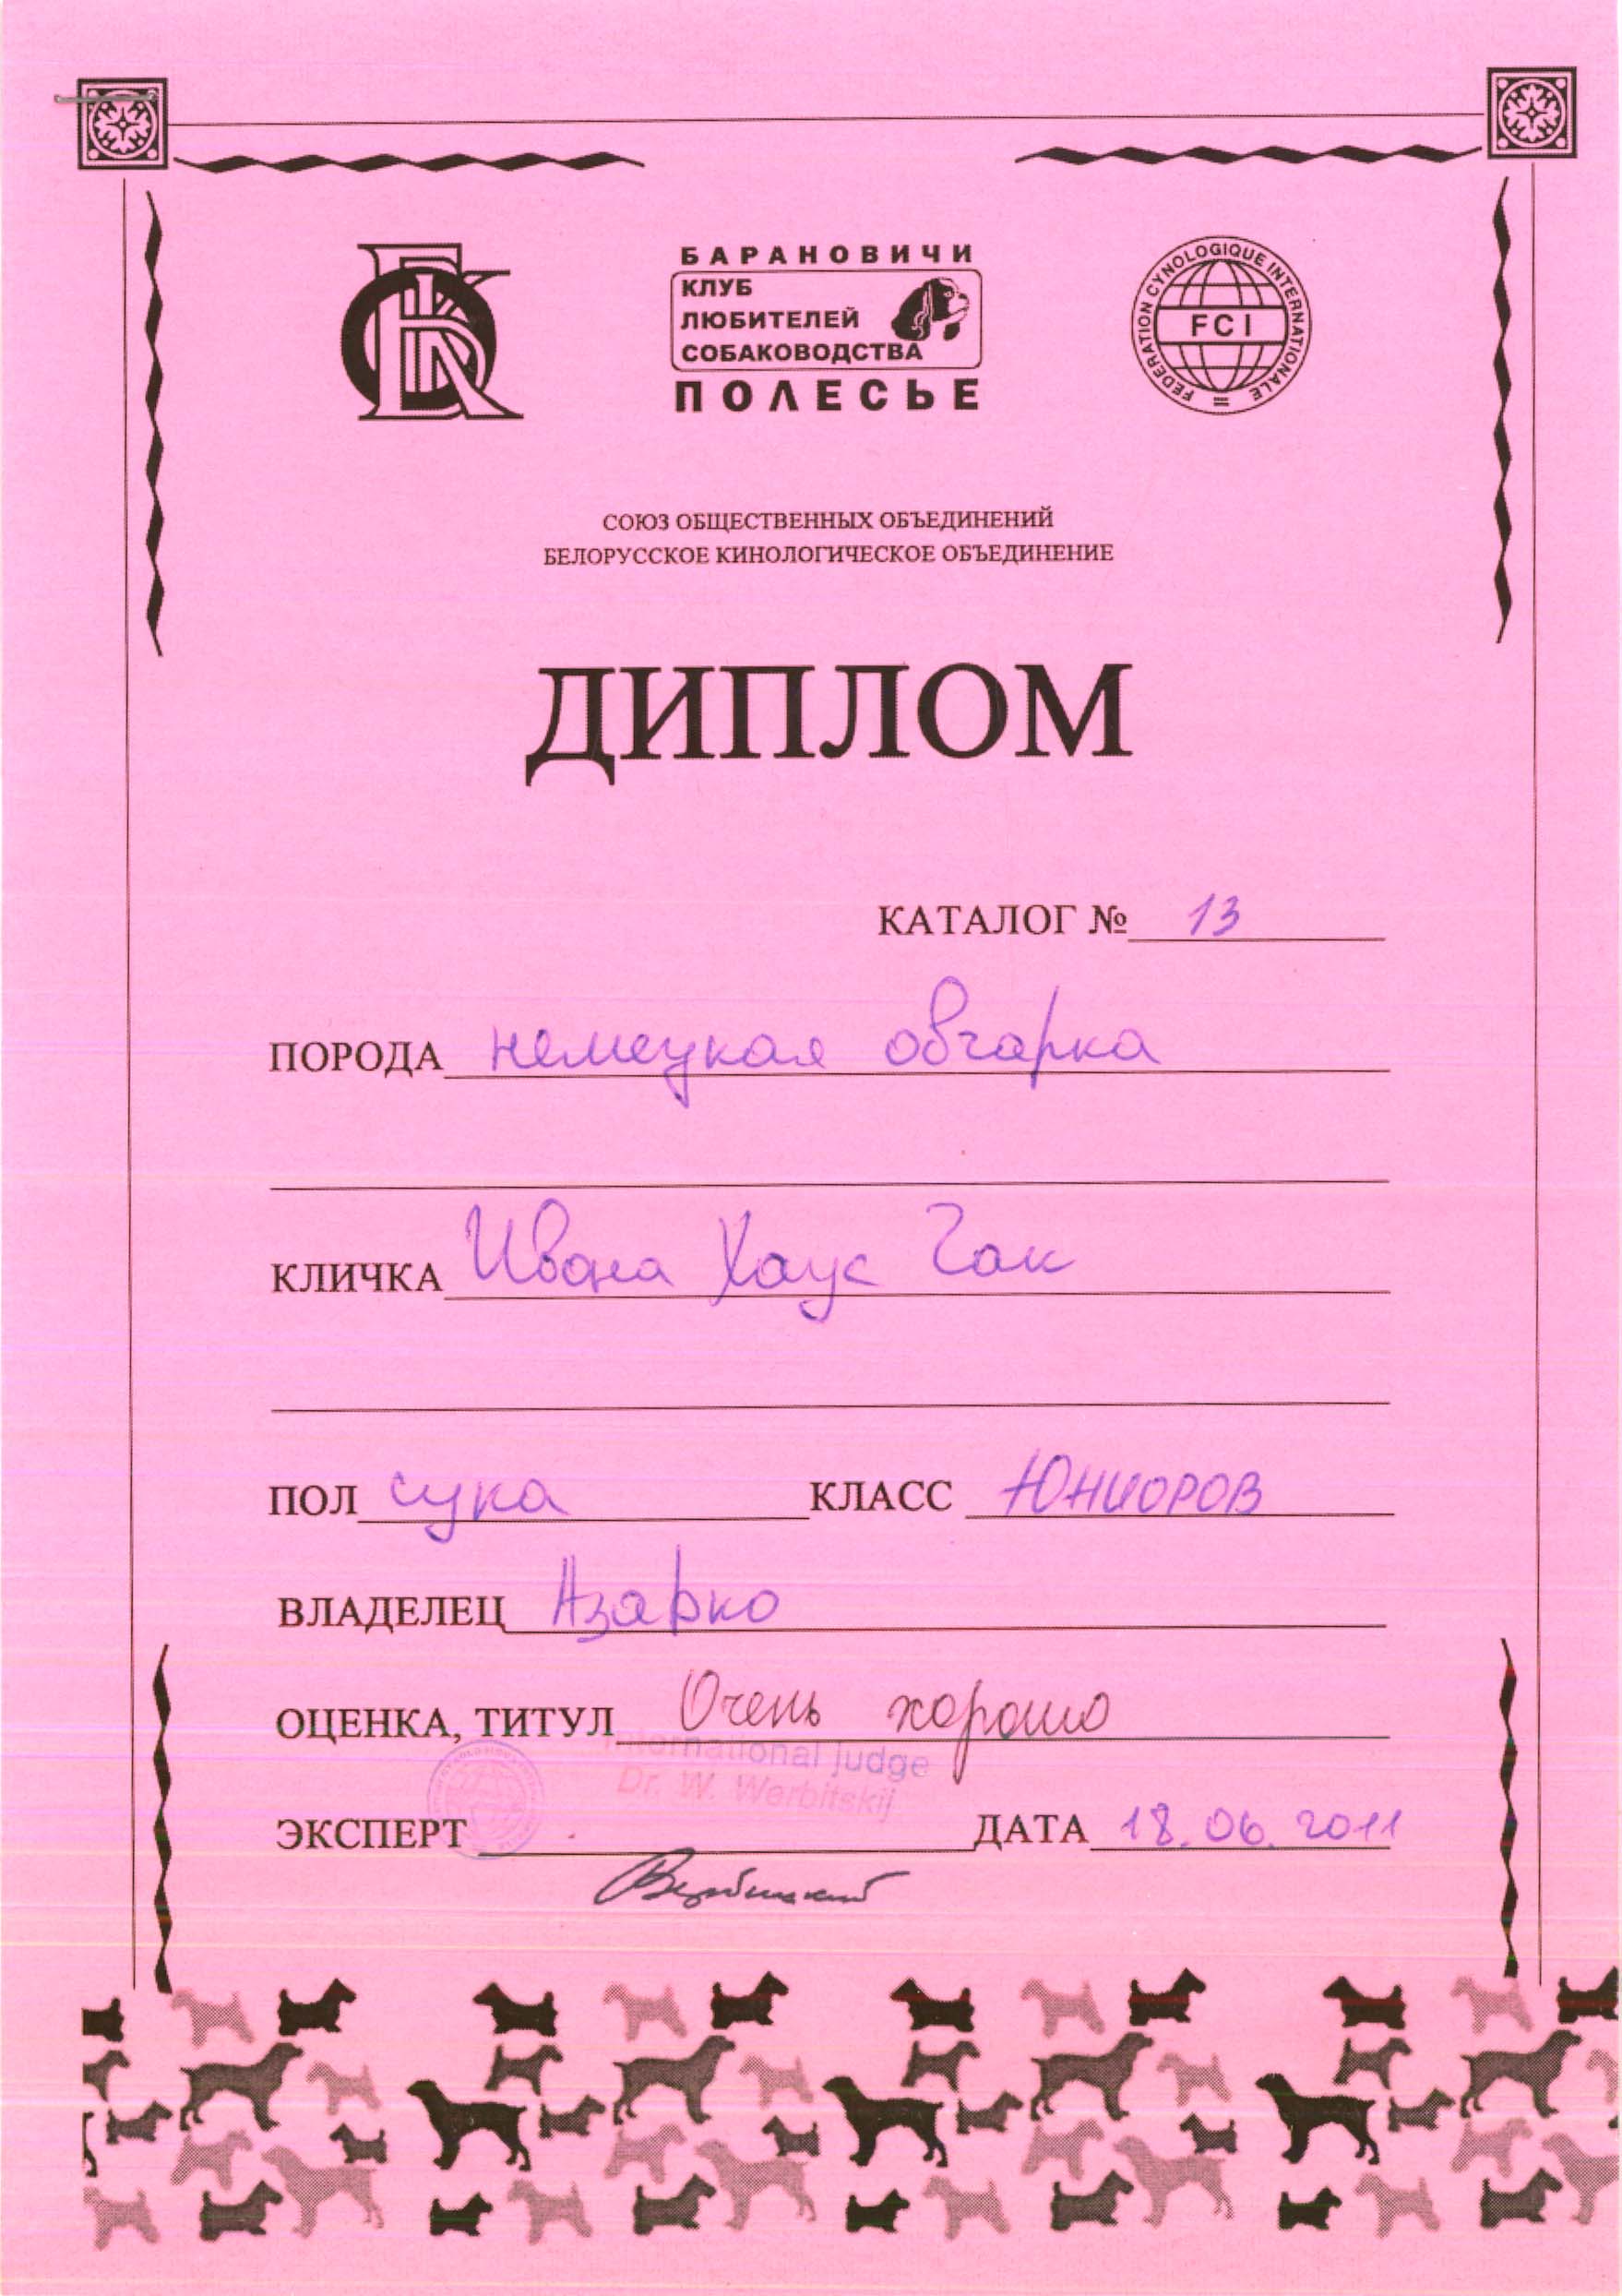 БАРАНОВИЧИ
КЛУБ
ЛЮБИТЕЛЕЙ
СОБАКОВОДСТВА
ПОЛЕСЬЕ
FEDERATION CYNOLOGIQUE INTERNATIONALE
FCI
СОЮЗ ОБЩЕСТВЕННЫХ ОБЪЕДИНЕНИЙ
БЕЛОРУССКОЕ КИНОЛОГИЧЕСКОЕ ОБЪЕДИНЕНИЕ
ДИПЛОМ
КАТАЛОГ № 13
ПОРОДА немецкая овчарка
КЛИЧКА Ивона Хаус Гак
ПОЛ сука КЛАСС Юниоров
ВЛАДЕЛЕЦ Азарко
ОЦЕНКА, ТИТУЛ Очень хорошо
International judge
Dr. W. Werbitskij
ЭКСПЕРТ ДАТА 18.06.2011
Вербицкий